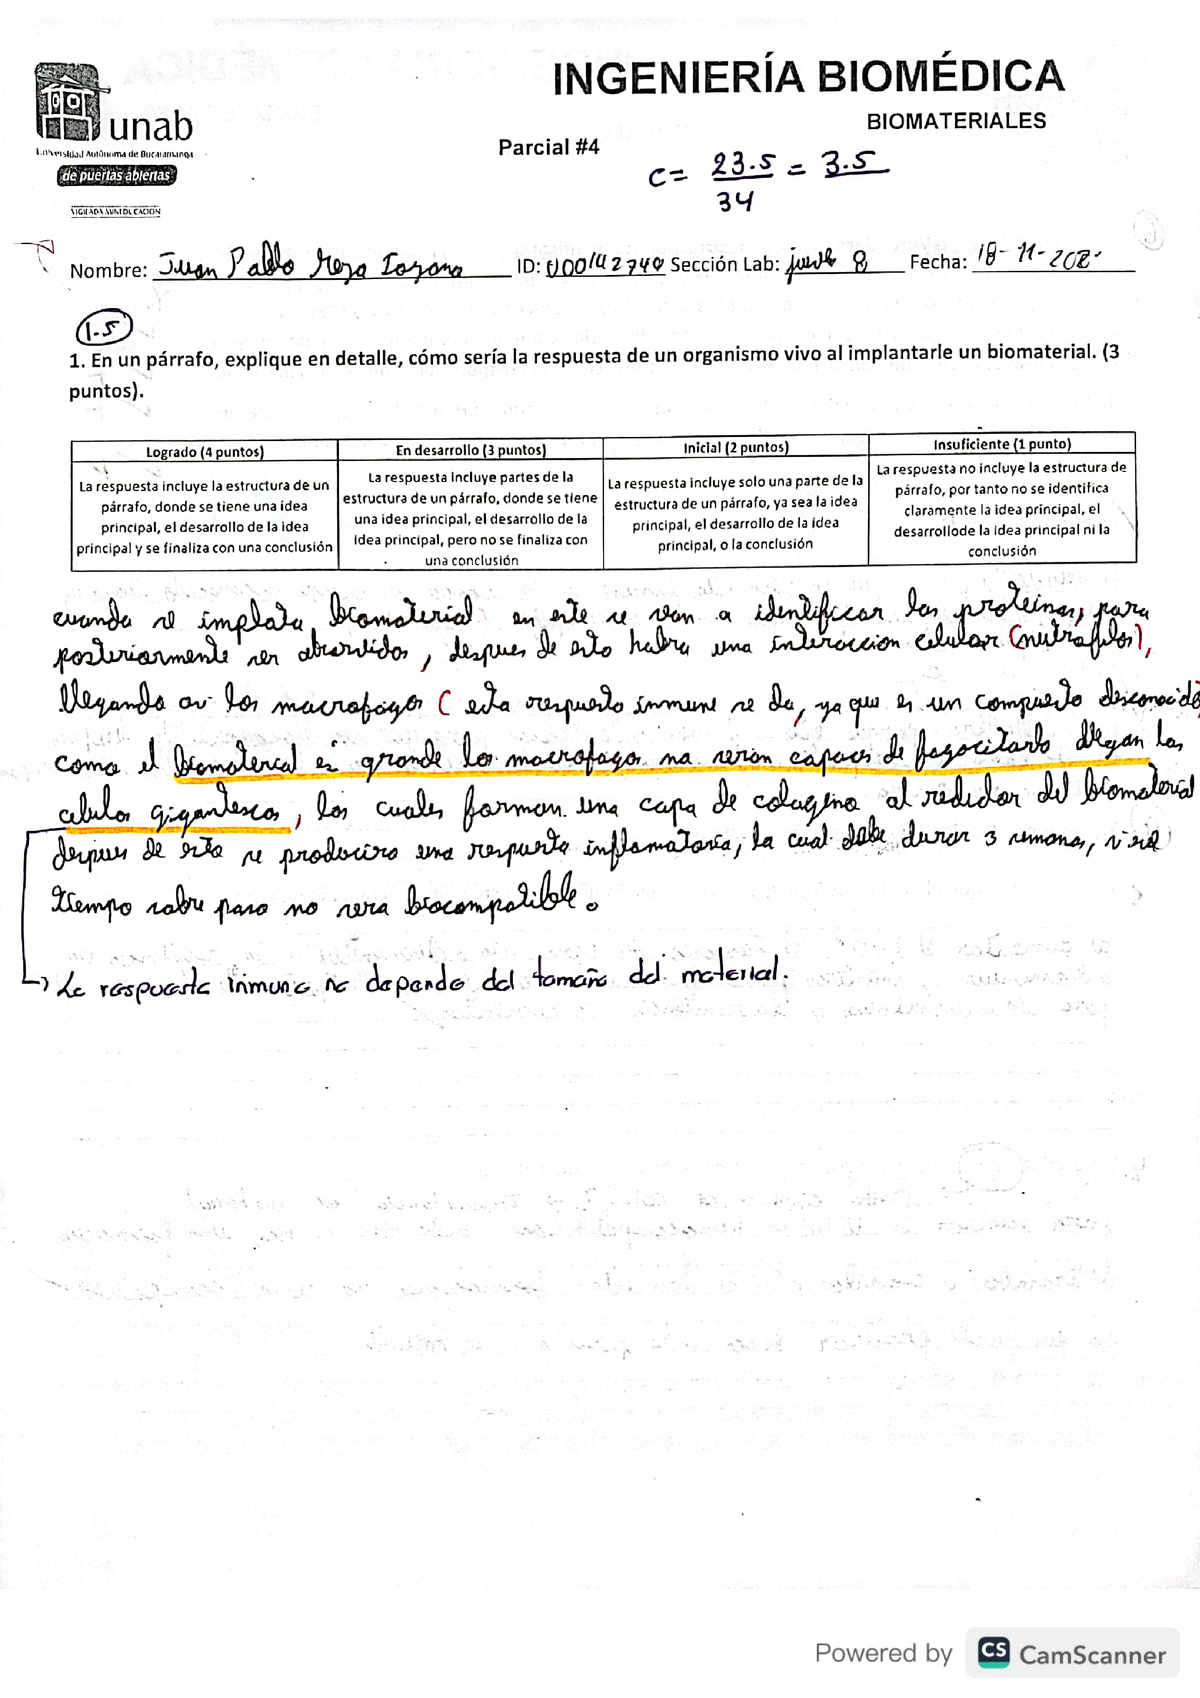 INGENIERÍA BIOMÉDICA
BIOMATERIALES
unab
Universidad Autónoma de Bucaramanga
de puertas abiertas
VIGILADA MINEDUCACIÓN
Parcial #4
C= 23.5 = 3.5
34
Nombre: Juan Pablo ID: U00142740 Sección Lab: 8 Fecha: 18-11-202
1.5
1. En un párrafo, explique en detalle, cómo sería la respuesta de un organismo vivo al implantarle un biomaterial. (3
puntos).
Logrado (4 puntos)
La respuesta incluye la estructura de un
párrafo, donde se tiene una idea
principal, el desarrollo de la idea
principal y se finaliza con una conclusión
En desarrollo (3 puntos)
La respuesta incluye partes de la
estructura de un párrafo, donde se tiene
una idea principal, el desarrollo de la
idea principal, pero no se finaliza con
una conclusión
Inicial (2 puntos)
La respuesta incluye solo una parte de la
estructura de un párrafo, ya sea la idea
principal, el desarrollo de la idea
principal, o la conclusión
Insuficiente (1 punto)
La respuesta no incluye la estructura de
párrafo, por tanto no se identifica
claramente la idea principal, el
desarrollode la idea principal ni la
conclusión
cuando se implata biomaterial en este se van a identificar las proteinas, para
posteriormente ser absorvidos, despues de esto habra una interaccion celular (neutrafilos),
llegando a los macrofagos ( esta respuesta immune se da, ya que es un compuesto desconocido
como el biomaterial es grande los macrofagos no seran capaces de fagocitarlo llegan las
celulas gigantescas, los cuales forman una capa de colageno al rededor del biomaterial
despues de esto se producira una respuesta inflamatoria, la cual debe durar 3 semanas, si el
tiempo sobre pasa no sera biocompatible.
La respuesta inmune no depende del tamaño del material.
Powered by CS CamScanner